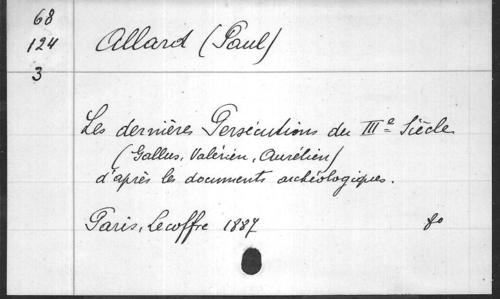 68
124
3
Allard (Paul)
Les dernières Persécutions du IIIe Siècle
(Gallus, Valérien, Aurélien)
d'après les documents archéologiques.
Paris, Lecoffre 1887 8o